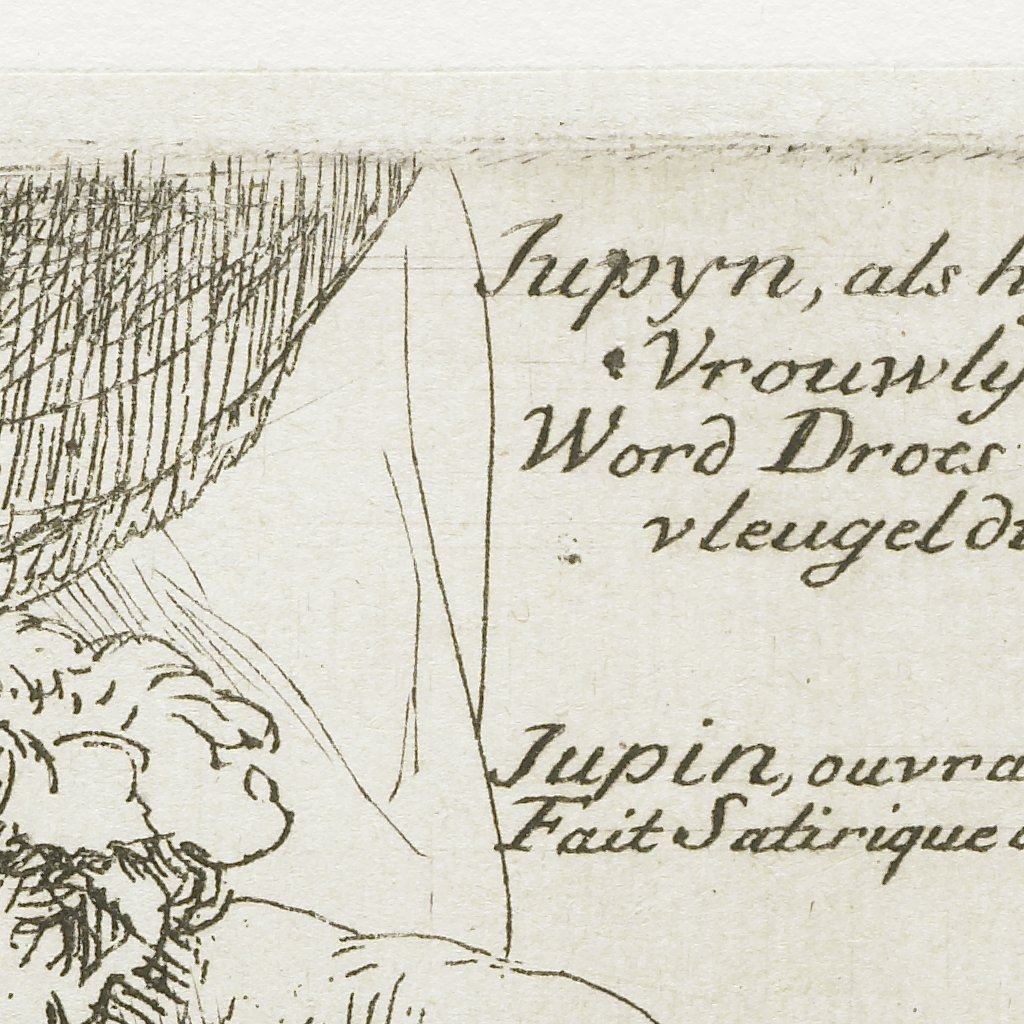 Jupyn, als h
Vrouwly
Word Droes
vleugel du
Jupin, ouvra
Fait Satirique